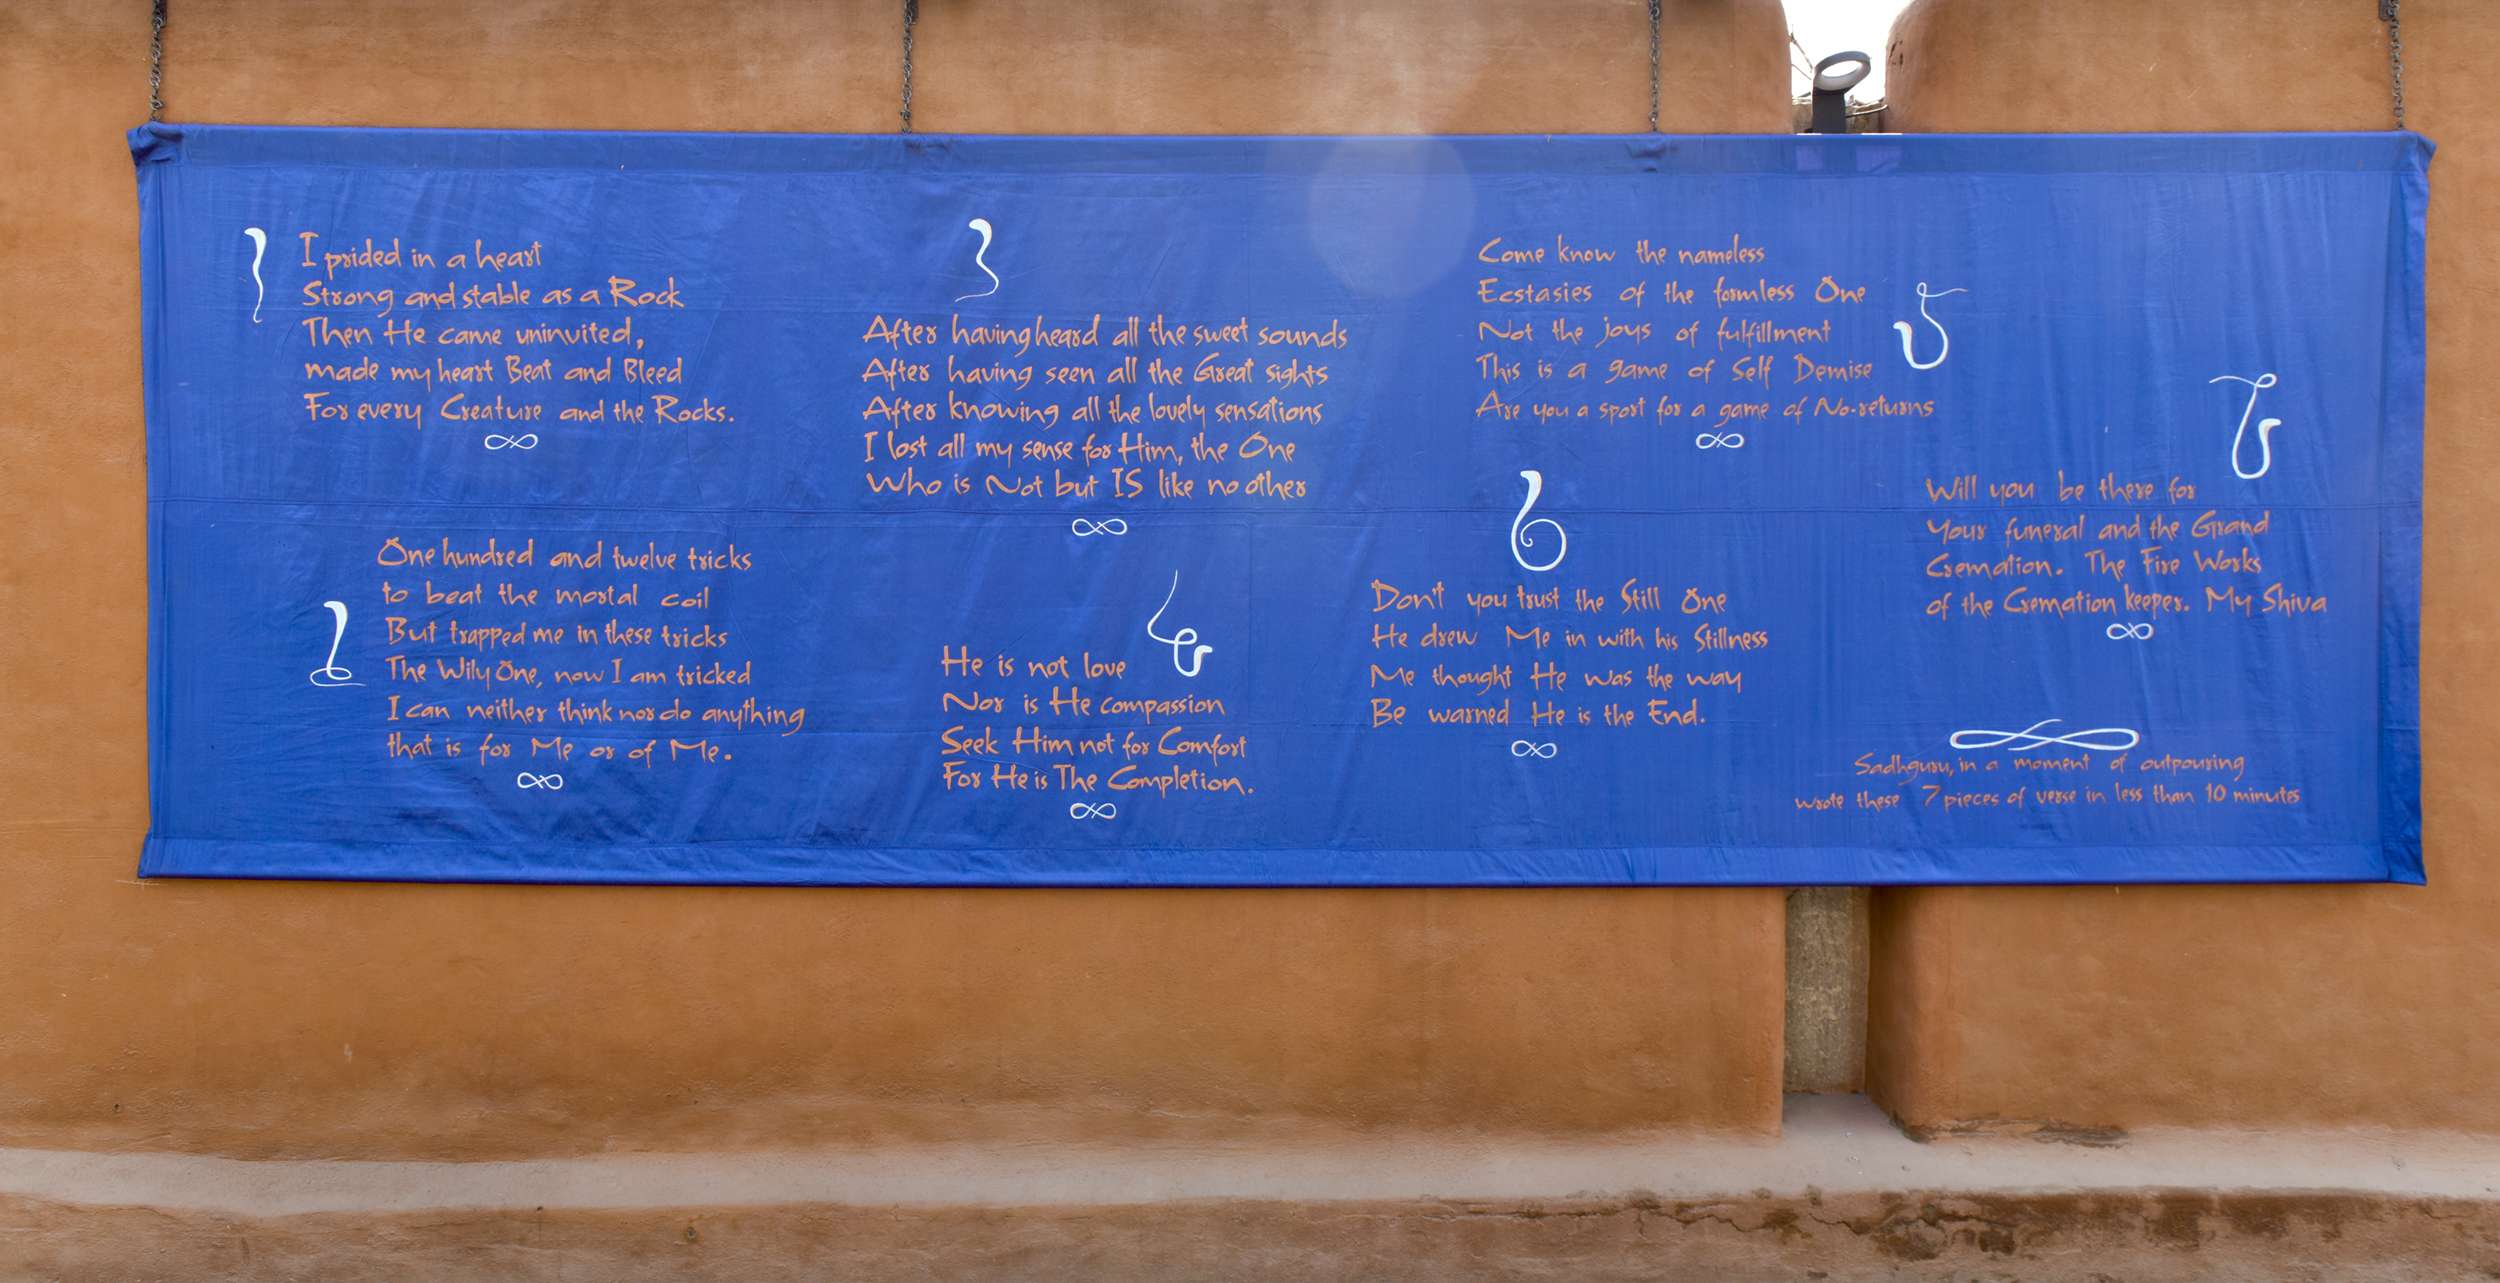 1
I prided in a heart
Strong and stable as a Rock
Then He came uninvited,
made my heart Beat and Bleed
For every Creature and the Rocks.
2
One hundred and twelve tricks
to beat the mortal coil
But trapped me in these tricks
The Wily One, now I am tricked
I can neither think nor do anything
that is for Me or of Me.
3
After having heard all the sweet sounds
After having seen all the Great sights
After knowing all the lovely sensations
I lost all my sense for Him, the One
Who is Not but IS like no other
4
He is not love
Nor is He compassion
Seek Him not for Comfort
For He is The Completion.
5
Come know the nameless
Ecstasies of the formless One
Not the joys of fulfillment
This is a game of Self Demise
Are you a sport for a game of No-returns
6
Don't you trust the Still One
He drew Me in with his Stillness
Me thought He was the way
Be warned He is the End.
7
Will you be there for
Your funeral and the Grand
Cremation. The Fire Works
of the Cremation keeper. My Shiva
Sadhguru, in a moment of outpouring
wrote these 7 pieces of verse in less than 10 minutes